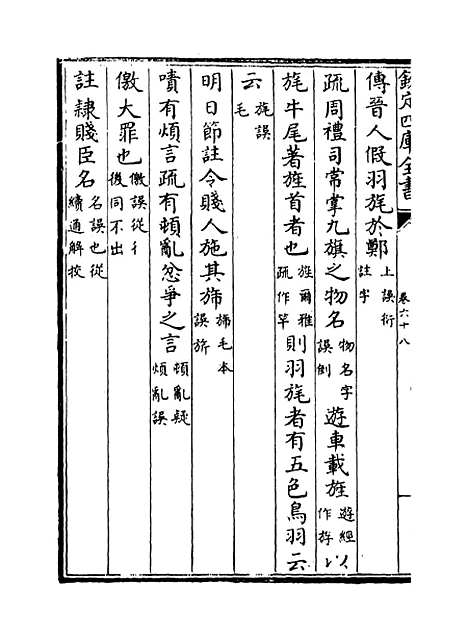 欽定四庫全書
卷六十八
傳晉人假羽旄於鄭上誤衍註字
疏周禮司常掌九旗之物名物名字誤倒遊車載旌遊經作斿以
旄牛尾著旌首者也旌爾雅疏作竿則羽旄者有五色鳥羽云
云旄誤毛
明日節註令賤人施其斾斾毛本誤旂
嘖有煩言疏有頓亂忿爭之言頓亂疑煩亂誤
儌大罪也儌誤從彳後同不出
註隸賤臣名名誤也從續通解校